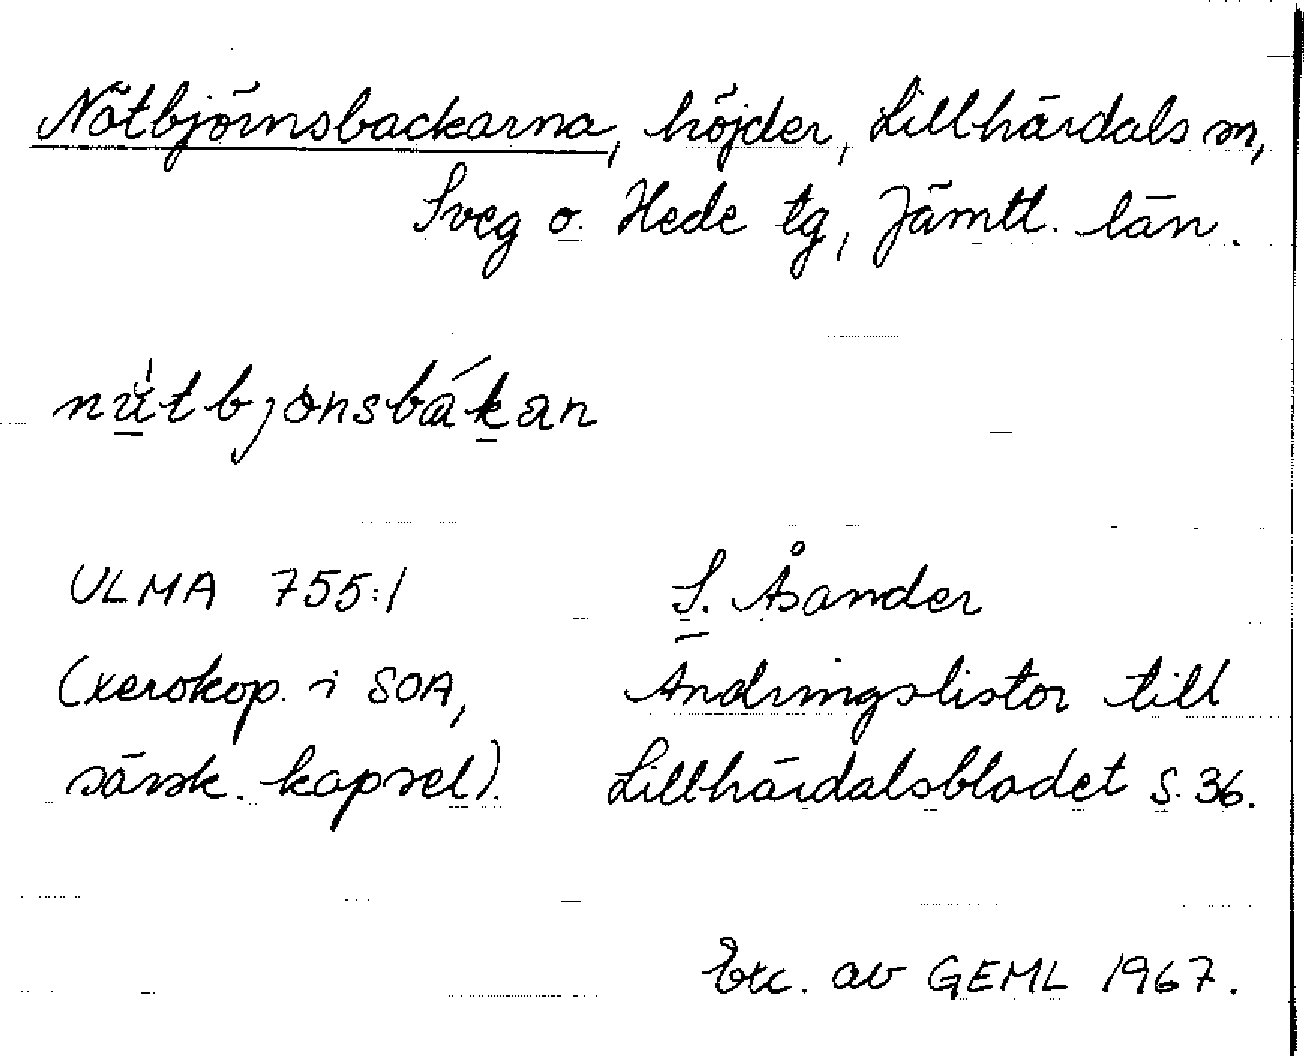 Nötbjörnsbackarna, höjder, Lillhärdals sn,
Sveg o. Hede tg, Jämtl. län.
nu̠̍tbjɔnsbák̠an
ULMA 755:1
S. Åsander
(xerokop. i SOA,
Ändringslistor till
särsk. kapsel).
Lillhärdalsbladet s. 36.
Exc. av GEML 1967.